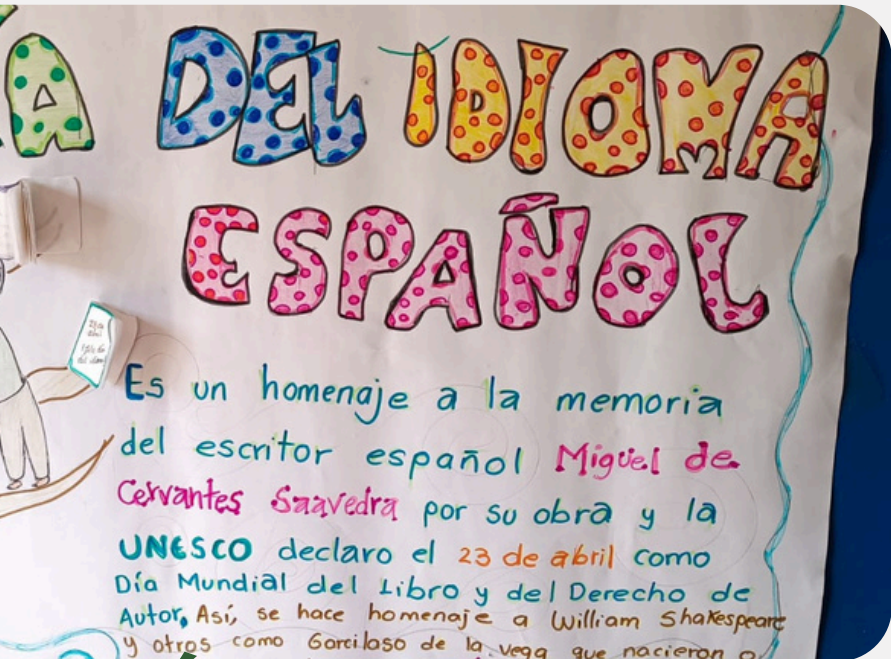 ÍA DEL IDIOMA
ESPAÑOL
23 de
abril
Es un homenaje a la memoria
del escritor español Miguel de
Cervantes Saavedra por su obra y la
UNESCO declaro el 23 de abril como
Día Mundial del Libro y del Derecho de
Autor, Así, se hace homenaje a William Shakespeare
y otros como Garcilaso de la vega que nacieron o